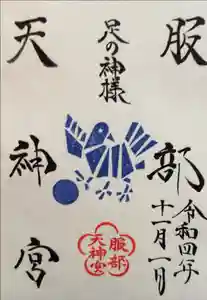 服部
天神宮
足の神様
令和四年
十一月一日
服部
天神宮